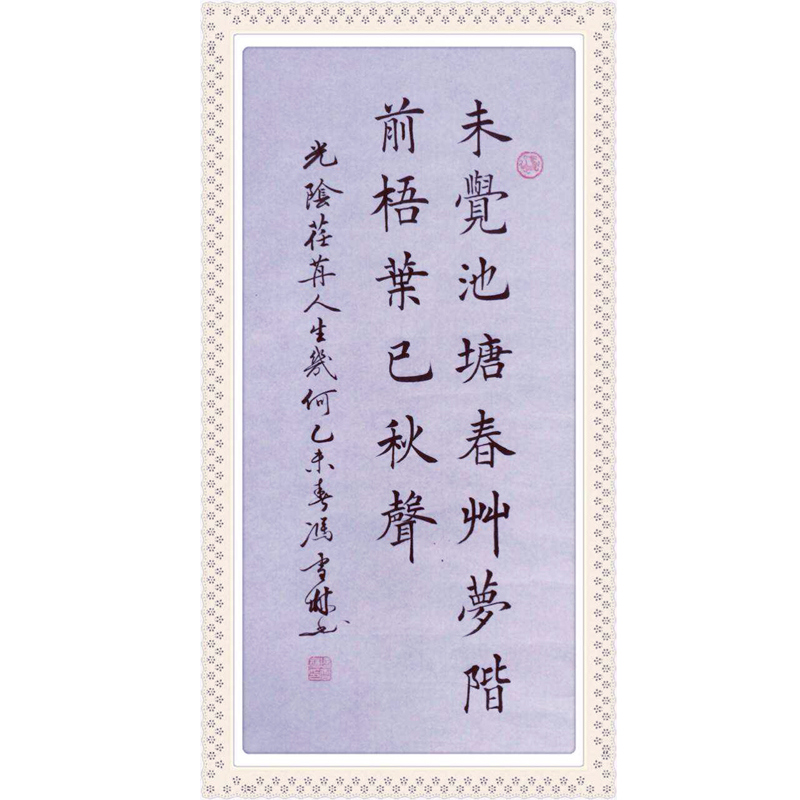 未覺池塘春艸夢階
前梧葉已秋聲
光陰荏苒人生幾何乙未春馮雪林书